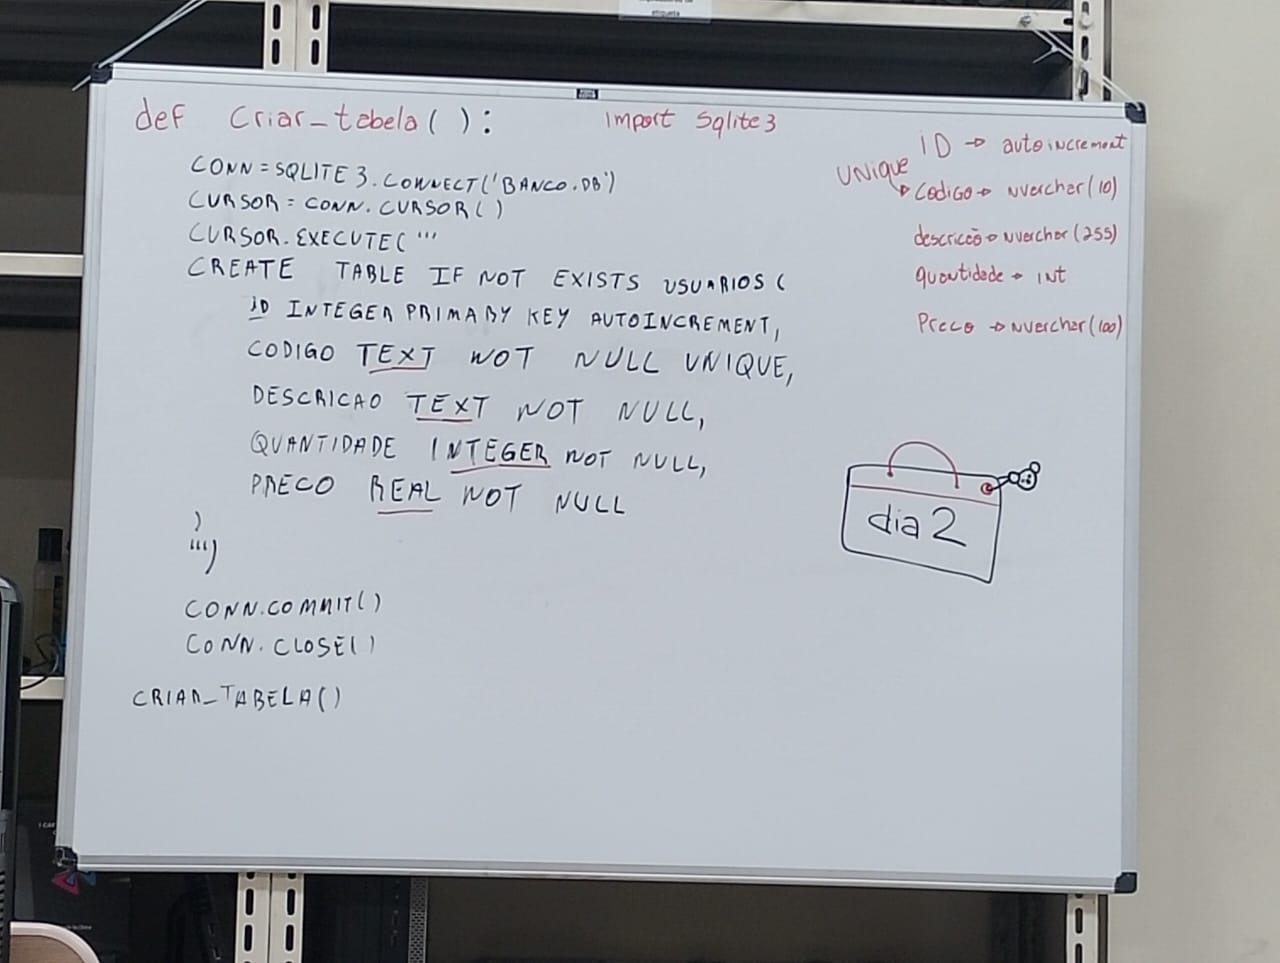 etiqueta
def Criar_tabela( ):
Import Sqlite3
CONN = SQLITE3.CONNECT('BANCO.DB')
CURSOR = CONN.CURSOR( )
CURSOR.EXECUTE( '''
CREATE TABLE IF NOT EXISTS USUARIOS (
ID INTEGER PRIMARY KEY AUTOINCREMENT,
CODIGO TEXT NOT NULL UNIQUE,
DESCRICAO TEXT NOT NULL,
QUANTIDADE INTEGER NOT NULL,
PRECO REAL NOT NULL
)
''')
CONN.COMMIT()
CONN.CLOSE()
CRIAR_TABELA()
ID → autoincrement
UNique
Codigo → Nvarchar(10)
descricão → Nvarchar(255)
quantidade → INt
Preco → Nvarchar(100)
dia 2